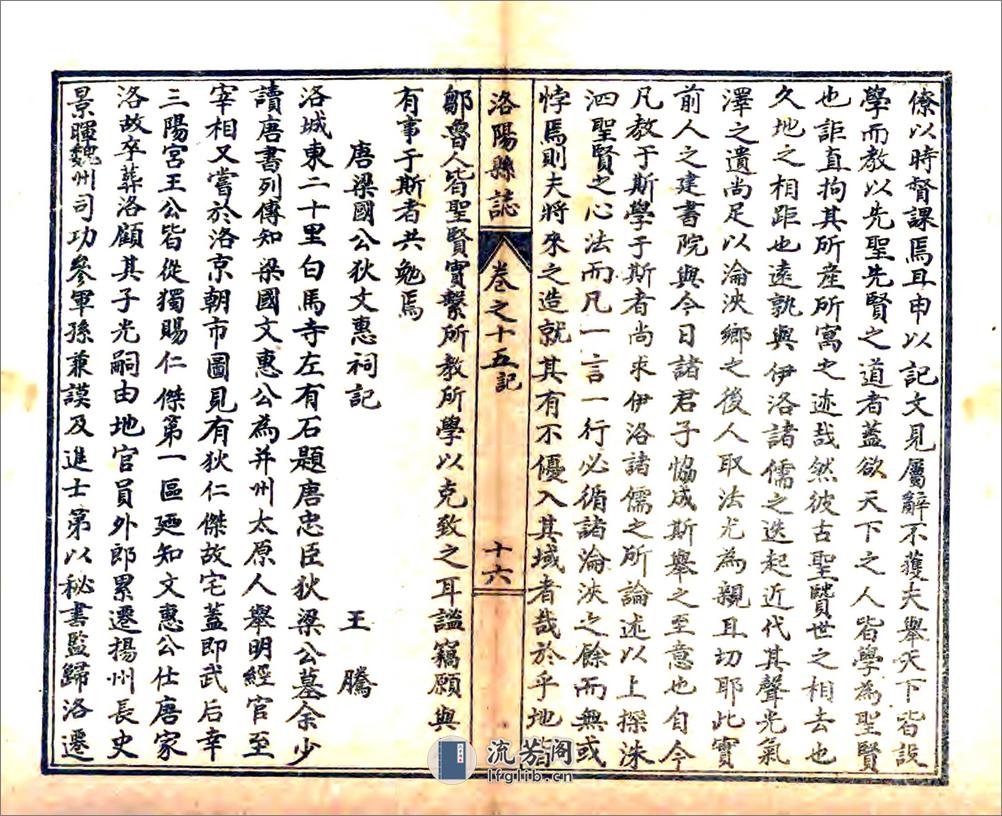 僚以時督課焉且申以記文見屬辭不獲夫舉天下皆設
學而教以先聖先賢之道者蓋欲天下之人皆學為聖賢
也詎直拘其所產所寓之迹哉然彼古聖賢世之相去也
久地之相距也遠孰與伊洛諸儒之迭起近代其聲光氣
澤之遺尚足以淪浹鄉之後人取法尤為親且切耶此實
前人之建書院與今日諸君子恊成斯舉之至意也自今
凡教于斯學于斯者尚求伊洛諸儒之所論述以上探洙
泗聖賢之心法而凡一言一行必循諸淪浹之餘而無或
悖焉則夫將來之造就其有不優入其域者哉於乎地皆
洛陽縣誌
卷之十五記
十六
鄒魯人皆聖賢實繫所教所學以克致之耳謐竊願與
有事于斯者共勉焉
唐梁國公狄文惠祠記
王騰
洛城東二十里白馬寺左有石題唐忠臣狄梁公墓余少
讀唐書列傳知梁國文惠公為并州太原人舉明經官至
宰相又嘗於洛京朝市圖見有狄仁傑故宅蓋即武后幸
三陽宮王公皆從獨賜仁傑第一區廼知文惠公仕唐家
洛故卒葬洛顧其子光嗣由地官員外郎累遷揚州長史
景暉魏州司功參軍孫兼謨及進士第以秘書監歸洛遷
流芳阁
lfglib.cn